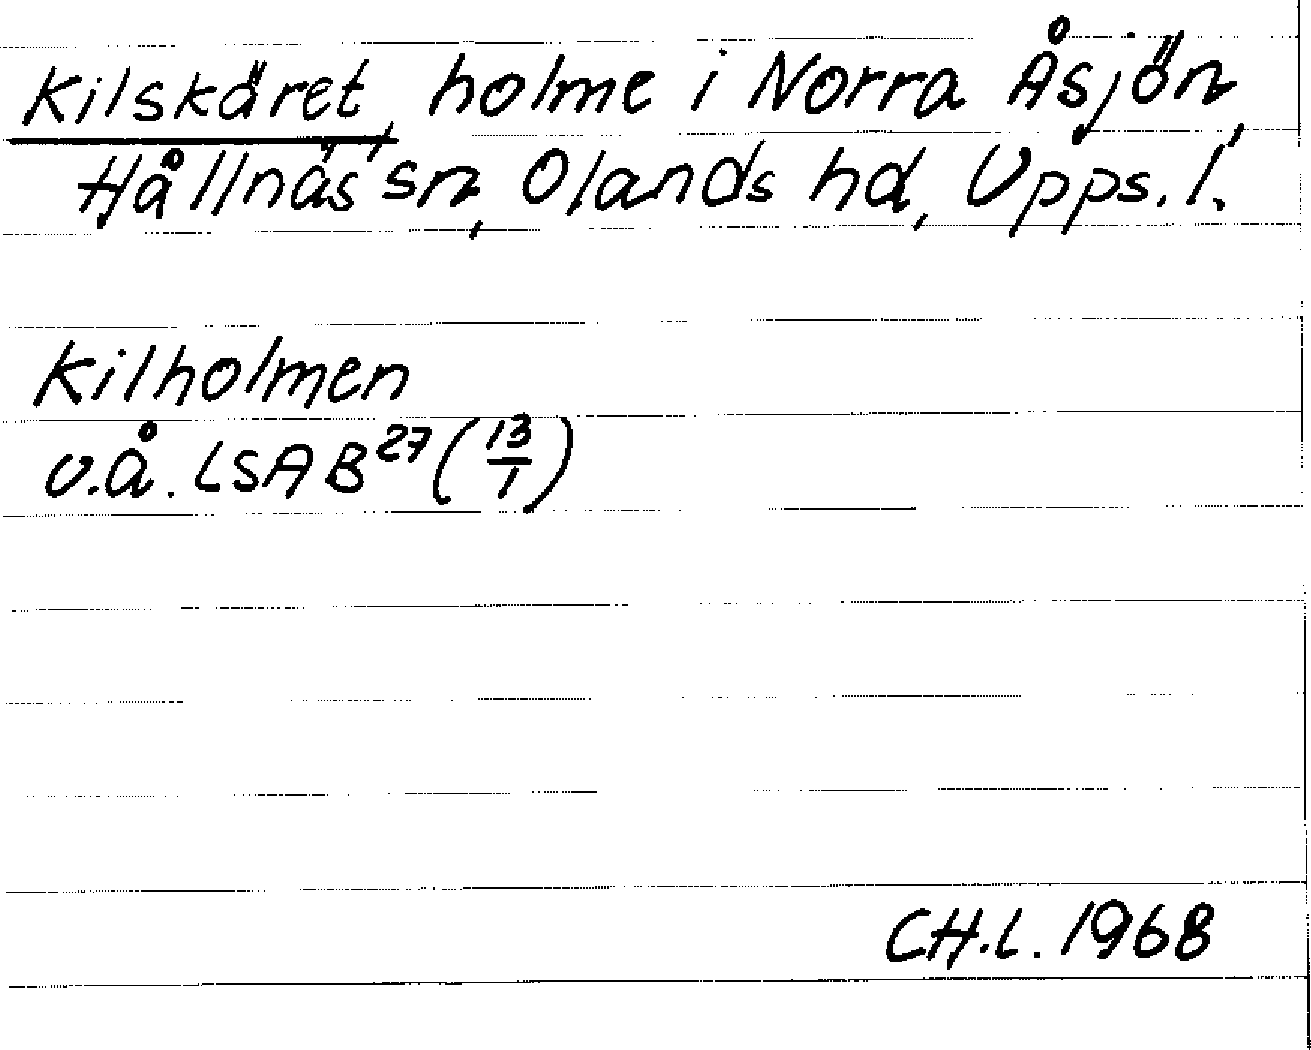 Kilskäret, holme i Norra Åsjön,
Hållnäs sn, Olands hd, Upps. l.
Kilholmen
u.å. LSA B²⁷ (13/1)
CH.L. 1968